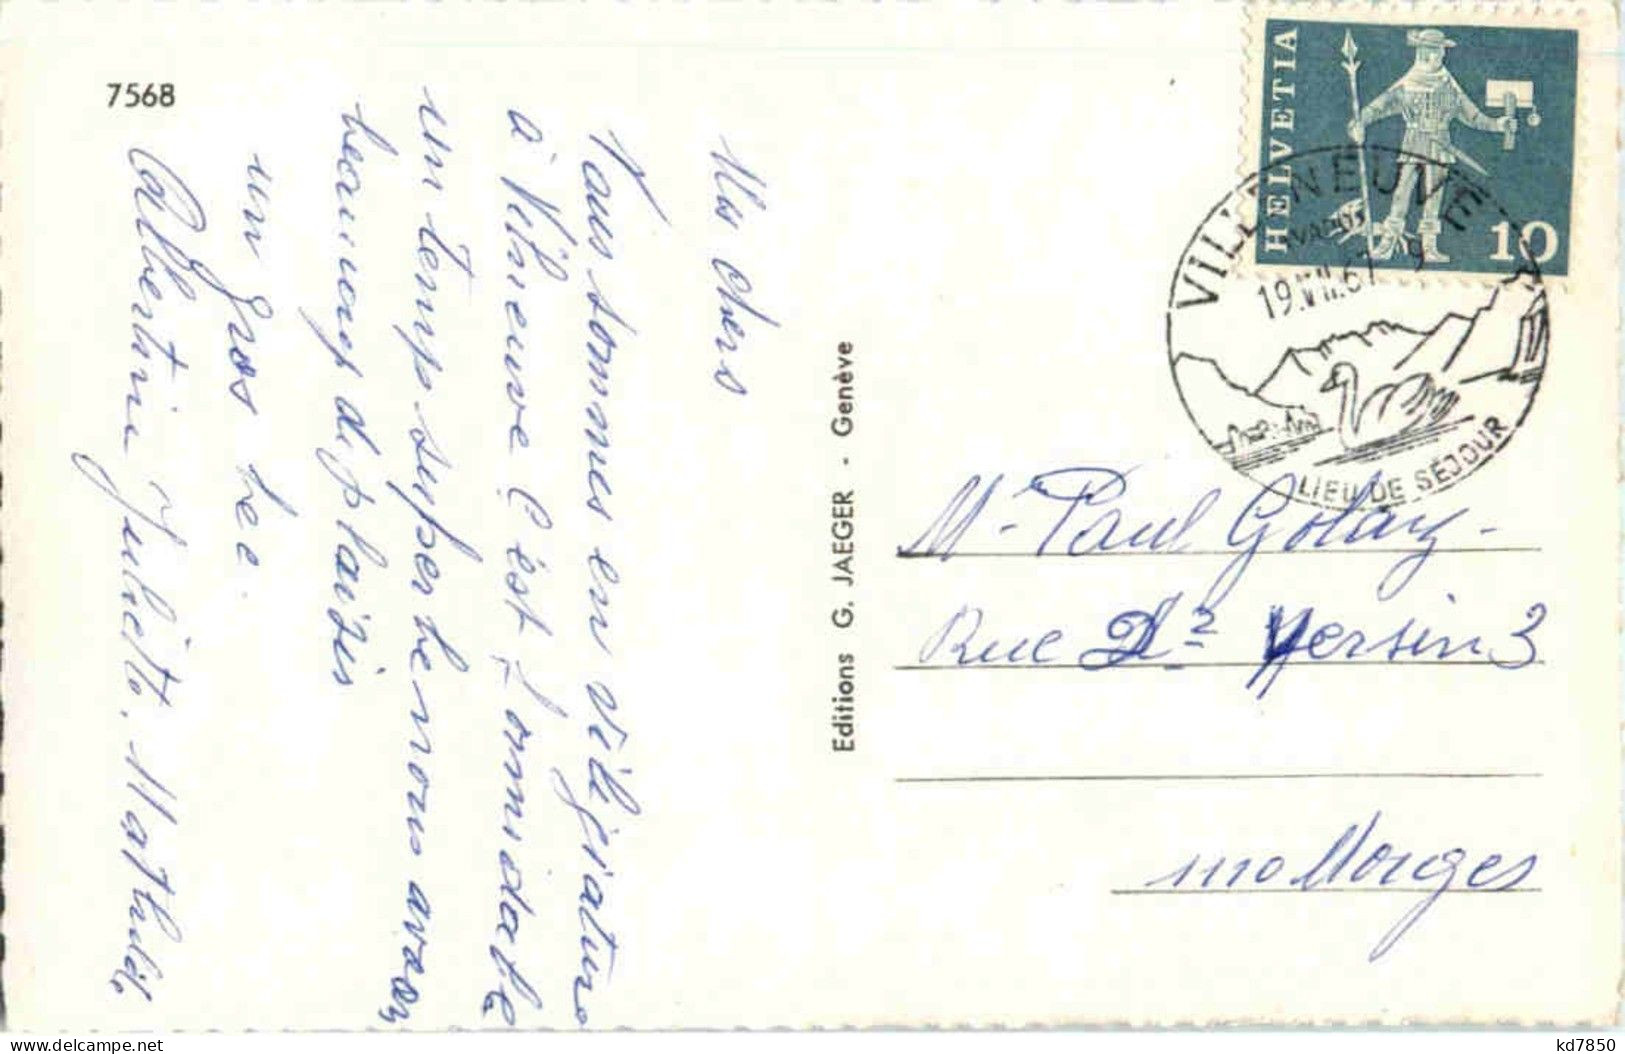 7568
Mes chers
Nous sommes en viléjiature
à Vilneuve C'est formidable
un temp superbe nous avons
beaucoup de plaisir
un gros bec.
Albertine Juliette. Mathilde
Editions G. JAEGER - Genève
HELVETIA
10
VILLENEUVE
(VAUD)
19.VII.67 9
LIEU DE SÉJOUR
M. Paul Golay -
Rue Dr Yersin 3
1110 Morges
kd7850